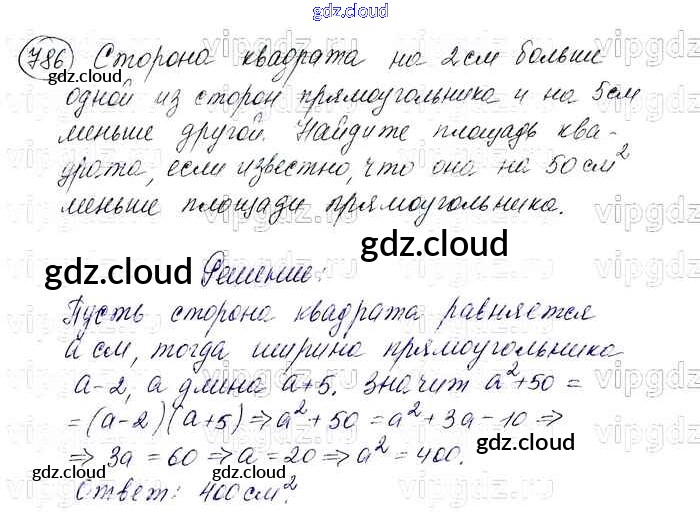 gdz.cloud
786 Сторона квадрата на 2 см больше
gdz.cloud
одной из сторон прямоугольника и на 5 см
меньше другой. Найдите площадь ква-
драта, если известно, что она на 50 см²
меньше площади прямоугольника.
gdz.cloud
gdz.cloud Решение:
Пусть сторона квадрата равняется
a см, тогда ширина прямоугольника
a-2, а длина a+5. Значит a²+50 =
= (a-2)(a+5) ⇒ a²+50 = a²+3a-10 ⇒
⇒ 3a = 60 ⇒ a = 20 ⇒ a² = 400.
gdz.cloud
gdz.cloud
gdz.cloud
Ответ: 400 см².